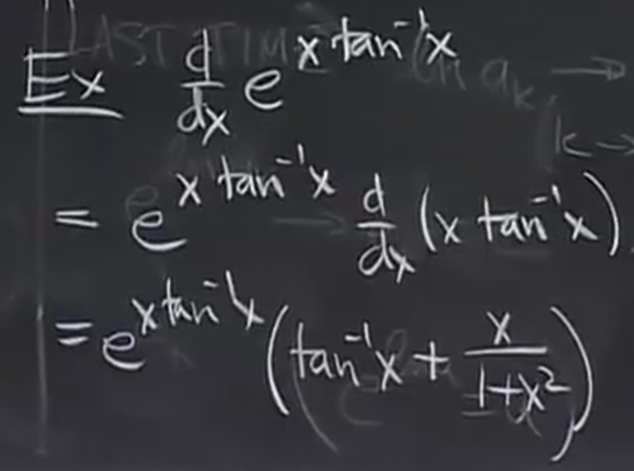 LAST TIME
Ex d/dx e^(x tan⁻¹x)
= e^(x tan⁻¹x) d/dx (x tan⁻¹x)
= e^(x tan⁻¹x) (tan⁻¹x + x/(1+x²))